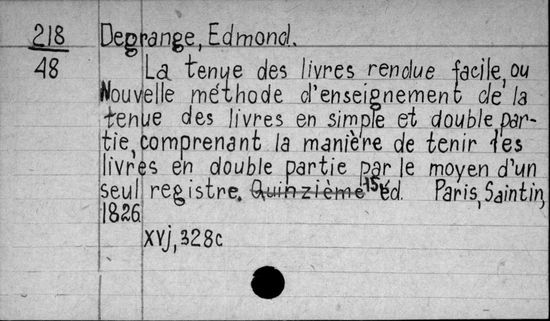 218 Degrange, Edmond.
48 La tenue des livres rendue facile, ou
Nouvelle méthode d'enseignement de la
tenue des livres en simple et double par-
tie, comprenant la manière de tenir les
livres en double partie par le moyen d'un
seul registre. ~~Quinzième~~ 15e éd. Paris, Saintin,
1826.
XVj, 328c